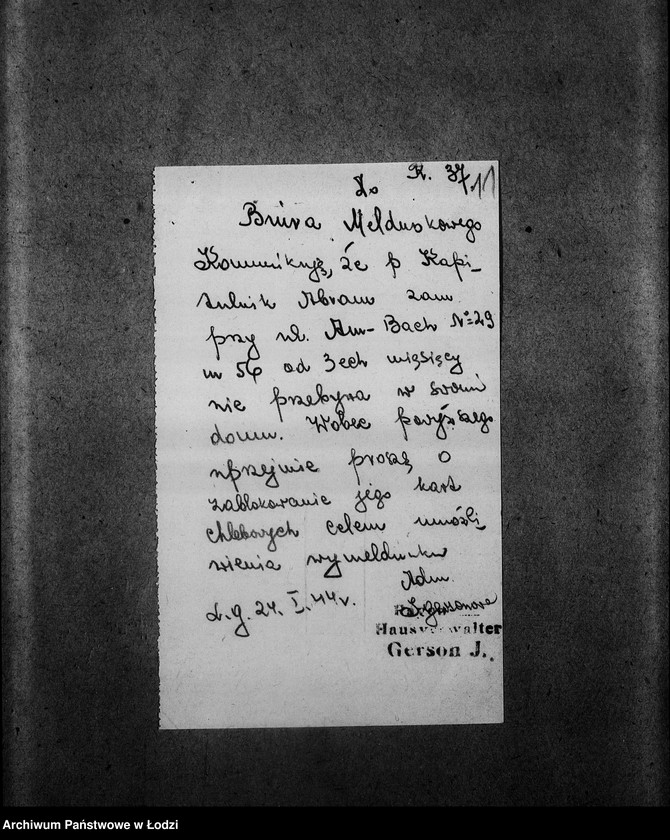 K. 37
11
Do
Biura Meldunkowego
Komunikuję, że p Kapi-
tulnik Abram zam
przy ul. Am-Bach №29
m 56 od 3ech miesięcy
nie przebywa w swoim
domu. Wobec powyższego
uprzejmie proszę o
zablokowanie jego kart
chlebowych celem umożli
wienia wymeldunku
Adm.
L.g. 24. I. 44 r.
Hausverwalter
Gerson J.
Archiwum Państwowe w Łodzi